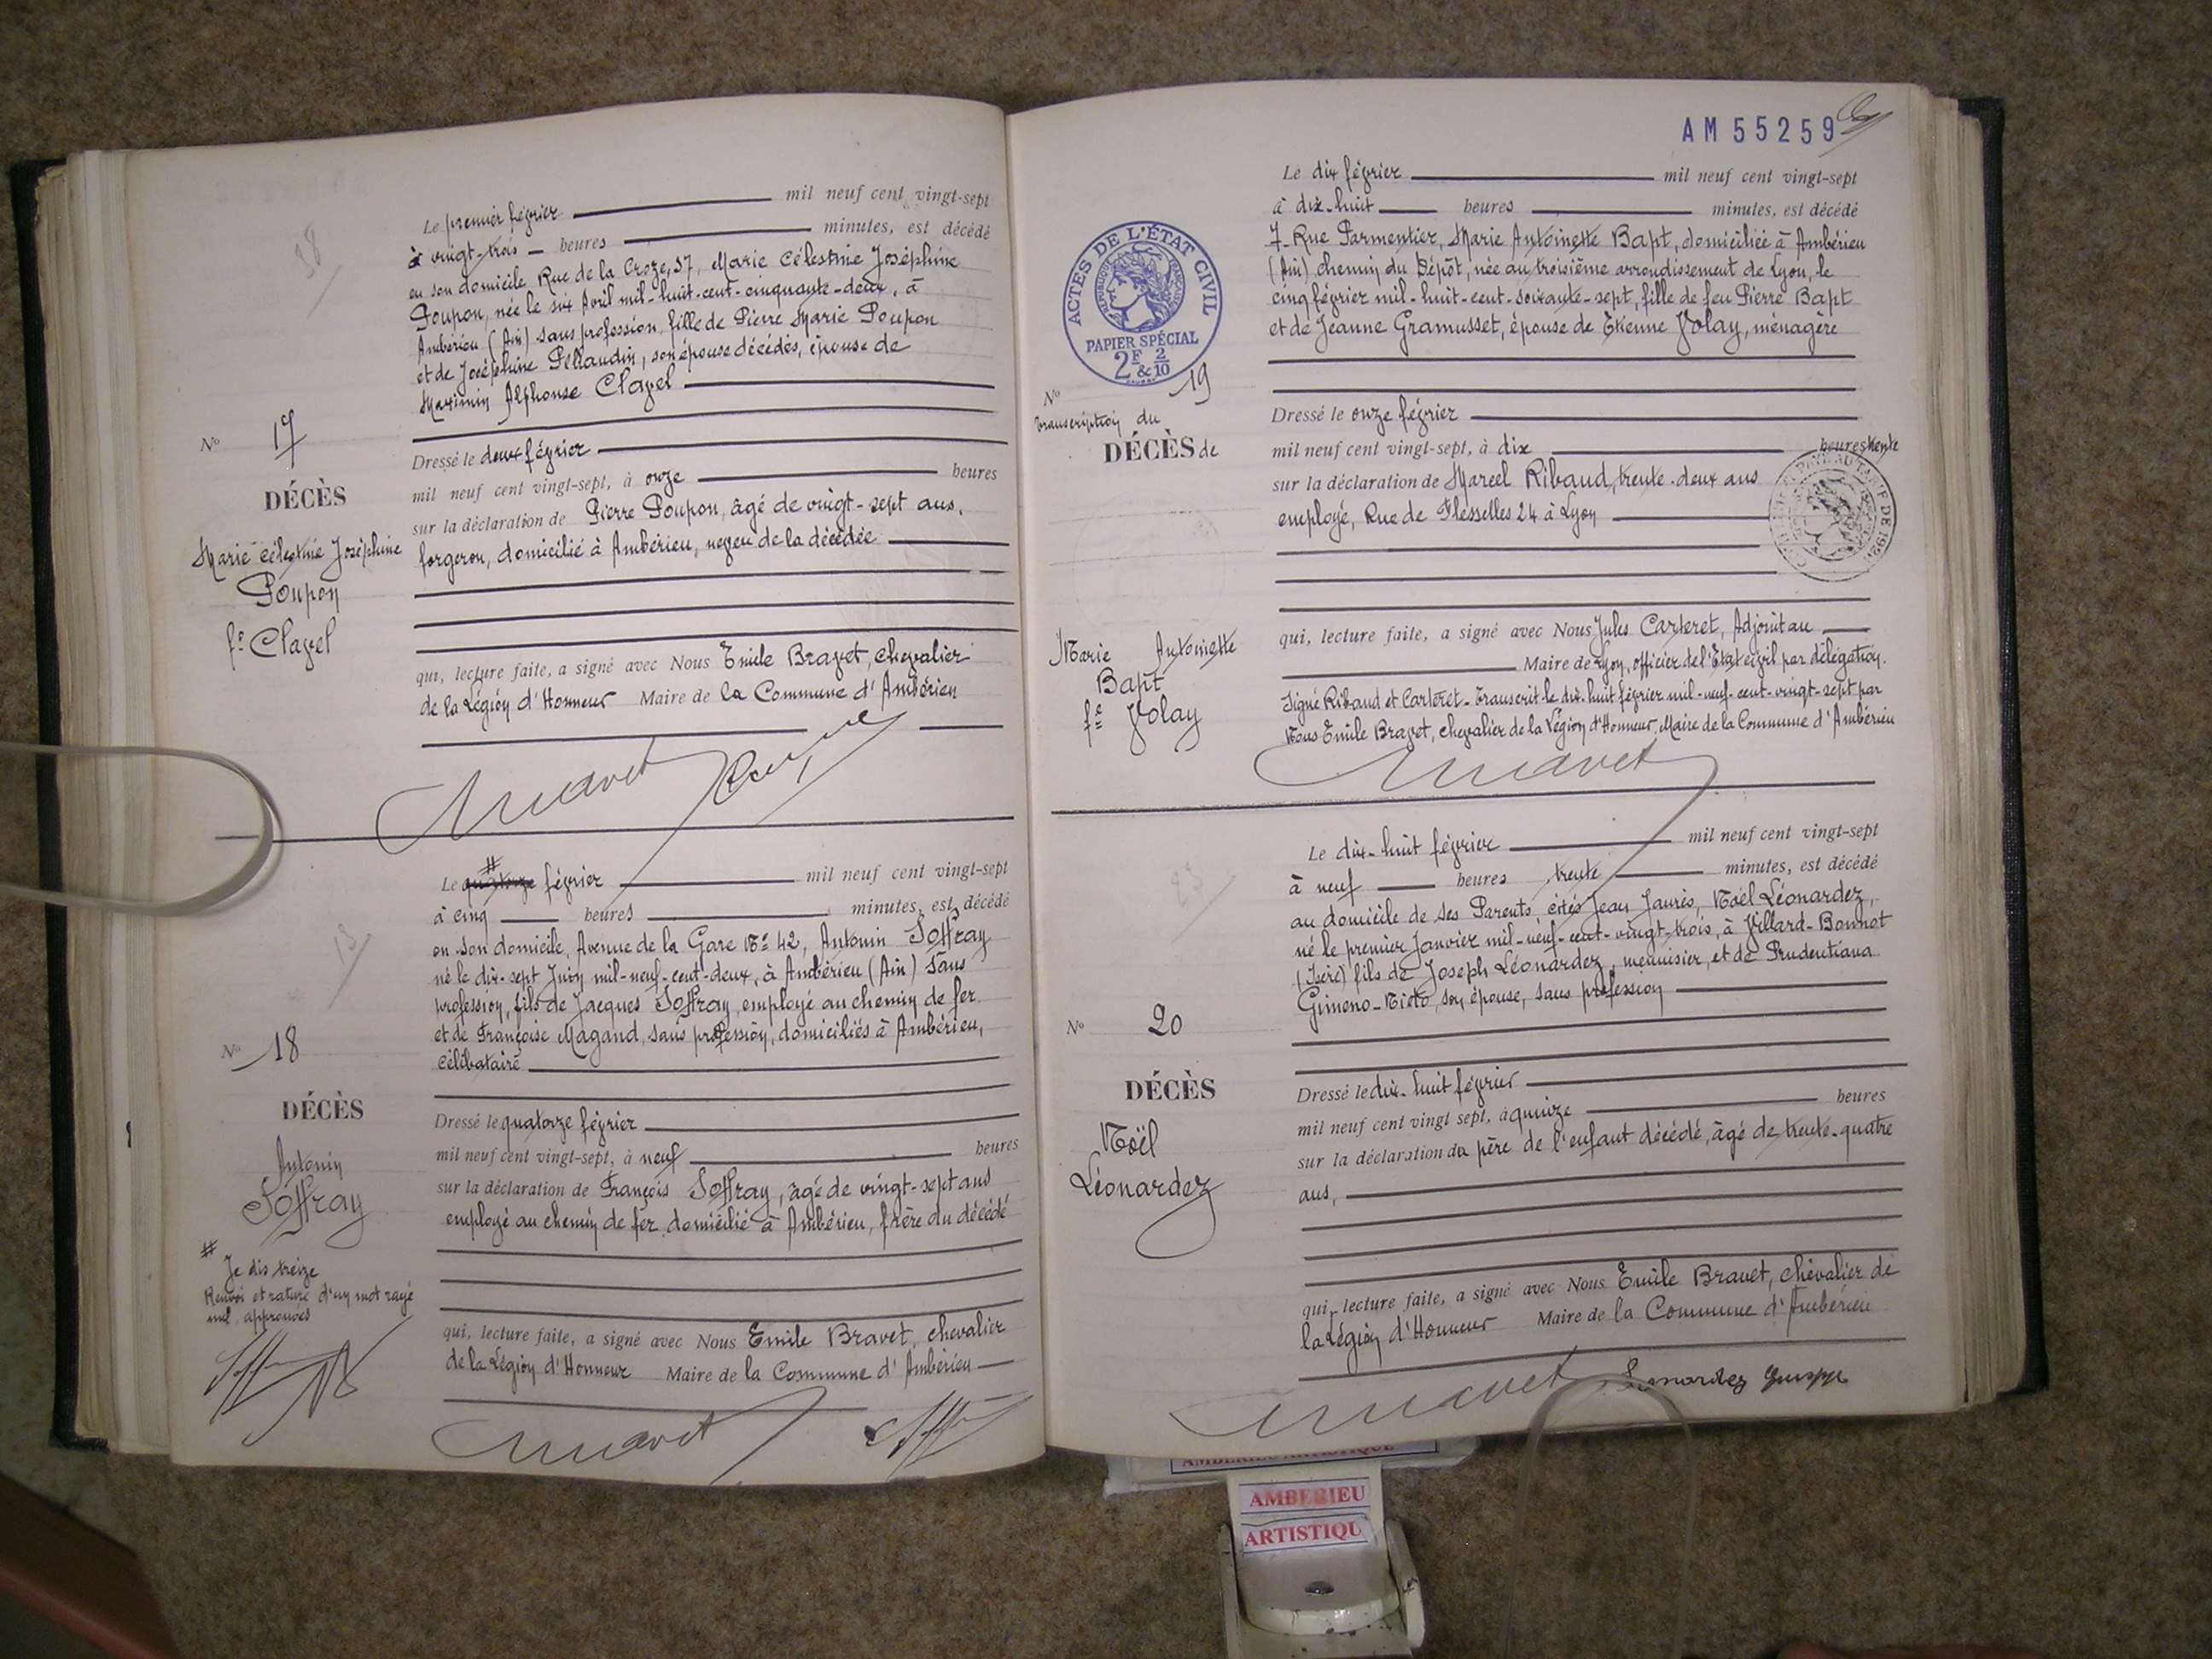 Le premier février mil neuf cent vingt-sept
à vingt-trois heures minutes, est décédé
en son domicile Rue de la Croze, 37, Marie Célestine Joséphine
Poupon, née le six Avril mil-huit-cent-cinquante-deux, à
Ambérieu (Ain) sans profession, fille de Pierre Marie Poupon
et de Joséphine, son épouse décédés, épouse de
Maximin Alphonse Clavel
No 17
DÉCÈS
Marie Célestine Joséphine
Poupon
fe Clavel
Dressé le deux février
mil neuf cent vingt-sept, à onze heures
sur la déclaration de Pierre Poupon, âgé de vingt-sept ans,
forgeron, domicilié à Ambérieu, neveu de la décédée
qui, lecture faite, a signé avec Nous Emile Bravet, chevalier
de la Légion d'Honneur Maire de la Commune d'Ambérieu
Le quatorze # février mil neuf cent vingt-sept
à cinq heures minutes, est décédé
en son domicile, Avenue de la Gare No 42, Antonin Joffray
né le dix-sept Juin mil-neuf-cent-deux, à Ambérieu (Ain) sans
profession, fils de Jacques Joffray, employé au chemin de fer
et de Françoise Magand, sans profession, domiciliés à Ambérieu,
célibataire
No 18
DÉCÈS
Antonin
Joffray
# Je dis treize
Renvoi et rature d'un mot rayé
nul, approuvés
Dressé le quatorze février
mil neuf cent vingt-sept, à neuf heures
sur la déclaration de François Joffray, âgé de vingt-sept ans
employé au chemin de fer, domicilié à Ambérieu, frère du décédé
qui, lecture faite, a signé avec Nous Emile Bravet, chevalier
de la Légion d'Honneur Maire de la Commune d'Ambérieu
AM 55259
Le dix février mil neuf cent vingt-sept
à dix-huit heures minutes, est décédé
7 Rue Parmentier, Marie Antoinette Bapt, domiciliée à Ambérieu
(Ain) chemin du Dépôt, née au troisième arrondissement de Lyon, le
cinq février mil-huit-cent-soixante-sept, fille de feu Pierre Bapt
et de Jeanne Gramusset, épouse de Etienne Volay, ménagère
ACTES DE L'ÉTAT CIVIL
RÉPUBLIQUE FRANÇAISE
PAPIER SPÉCIAL
2F & 2/10
No 19
transcription du
DÉCÈS de
Marie Antoinette
Bapt
fe Volay
Dressé le onze février
mil neuf cent vingt-sept, à dix heures trente
sur la déclaration de Marcel Ribaud, trente-deux ans
employé, Rue de Flesselles 24 à Lyon
qui, lecture faite, a signé avec Nous Jules Carteret, Adjoint au
Maire de Lyon, officier de l'Etat civil par délégation.
Signé Ribaud et Carteret - Transcrit le dix-huit février mil-neuf-cent-vingt-sept par
Nous Emile Bravet, chevalier de la Légion d'Honneur, Maire de la Commune d'Ambérieu
Le dix-huit février mil neuf cent vingt-sept
à neuf heures trente minutes, est décédé
au domicile de ses Parents, cités Jean Jaurès, Noël Léonardez,
né le premier Janvier mil-neuf-cent-vingt-trois, à Villard-Bonnot
(Isère) fils de Joseph Léonardez, menuisier, et de Prudentiana
Gimeno-Nieto, son épouse, sans profession
No 20
DÉCÈS
Noël
Léonardez
Dressé le dix-huit février
mil neuf cent vingt sept, à quinze heures
sur la déclaration du père de l'enfant décédé, âgé de trente-quatre
ans,
qui, lecture faite, a signé avec Nous Emile Bravet, chevalier de
la Légion d'Honneur Maire de la Commune d'Ambérieu
AMBERIEU ARTISTIQUE
AMBERIEU
ARTISTIQU